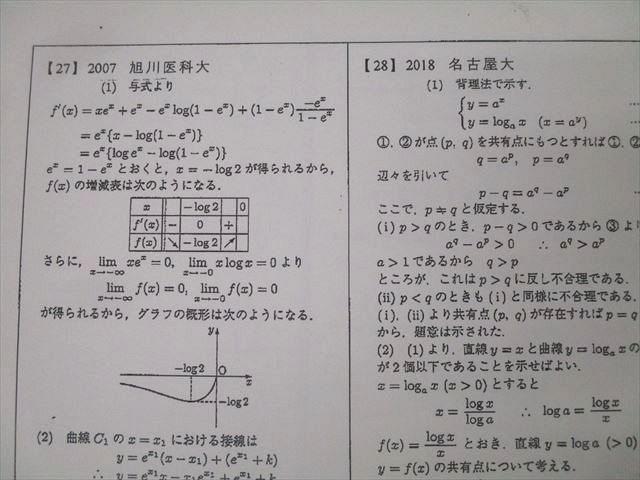 【27】2007 旭川医科大
(1) 与式より
f'(x) = xeˣ + eˣ − eˣ log(1 − eˣ) + (1 − eˣ) (−eˣ)/(1 − eˣ)
= eˣ{x − log(1 − eˣ)}
= eˣ{log eˣ − log(1 − eˣ)}
eˣ = 1 − eˣ とおくと, x = −log 2 が得られるから,
f(x) の増減表は次のようになる.
x −log 2 0
f'(x) − 0 +
f(x) ↘ −log 2 ↗
さらに, lim_{x→−∞} xeˣ = 0, lim_{x→−0} x log x = 0 より
lim_{x→−∞} f(x) = 0, lim_{x→−0} f(x) = 0
が得られるから, グラフの概形は次のようになる.
y
−log 2 O x
−log 2
(2) 曲線 C₁ の x = x₁ における接線は
y = e^{x₁}(x − x₁) + (e^{x₁} + k)
【28】2018 名古屋大
(1) 背理法で示す.
y = aˣ …
y = logₐ x (x = a^y) …
①, ② が点(p, q) を共有点にもつとすれば ①, ②
q = a^p, p = a^q
辺々を引いて
p − q = a^q − a^p …
ここで, p ≠ q と仮定する.
(i) p > q のとき, p − q > 0 であるから ③ より
a^q − a^p > 0 ∴ a^q > a^p
a > 1 であるから q > p
ところが, これは p > q に反し不合理である.
(ii) p < q のときも (i) と同様に不合理である.
(i), (ii) より共有点(p, q) が存在すれば p = q
から, 題意は示された.
(2) (1) より, 直線 y = x と曲線 y = logₐ x の
が 2 個以下であることを示せばよい.
x = logₐ x (x > 0) とすると
x = log x / log a ∴ log a = log x / x
f(x) = log x / x とおき, 直線 y = log a (> 0)
y = f(x) の共有点について考える.